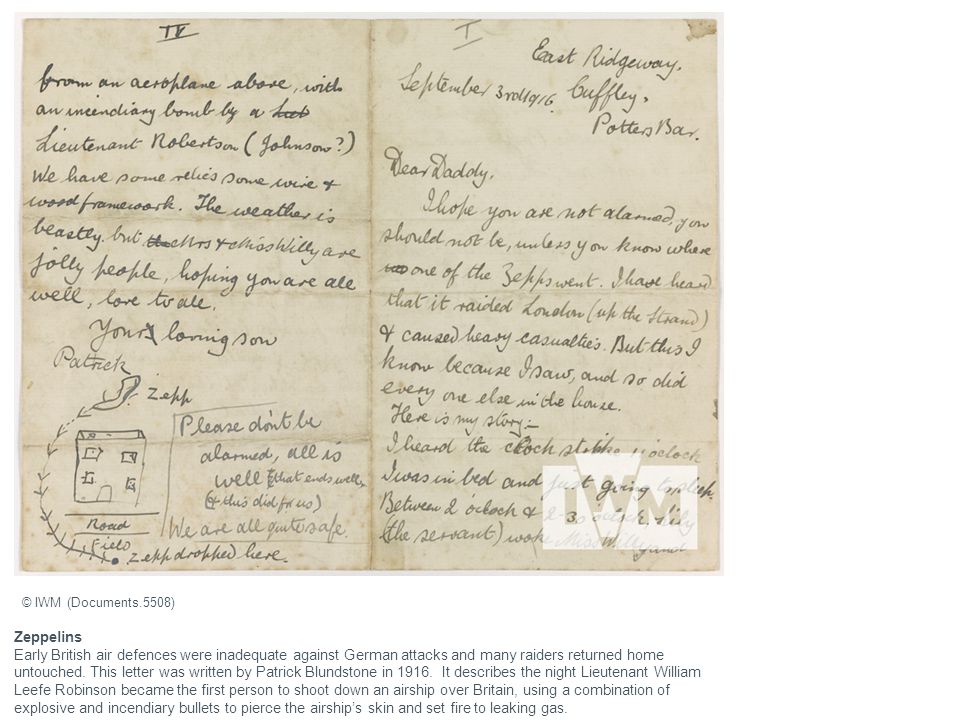 IV
from an aeroplane above, with
an incendiary bomb by a
Lieutenant Robertson (Johnson?)
We have some relics some wire &
wood framework. The weather is
beastly but the Mrs & Miss Willy are
jolly people, hoping you are all
well, love to all.
Your loving son
Patrick
Zepp
Road
Field
Zepp dropped here.
Please don't be
alarmed, all is
well (that ends well,
(& this did for us)
We are all quite safe.
I
East Ridgeway,
September 3rd 1916. Cuffley,
Potters Bar.
Dear Daddy,
I hope you are not alarmed, you
should not be, unless you know where
one of the Zepps went. I have heard
that it raided London (up the Strand)
& caused heavy casualties. But this I
know because I saw, and so did
every one else in the house.
Here is my story:-
I heard the clock strike 11 o'clock
I was in bed and just going to sleep.
Between 2 o'clock & 2-30 o'clock, Lily
(the servant) woke Miss Willy
IWM
© IWM (Documents.5508)
Zeppelins
Early British air defences were inadequate against German attacks and many raiders returned home
untouched. This letter was written by Patrick Blundstone in 1916. It describes the night Lieutenant William
Leefe Robinson became the first person to shoot down an airship over Britain, using a combination of
explosive and incendiary bullets to pierce the airship's skin and set fire to leaking gas.